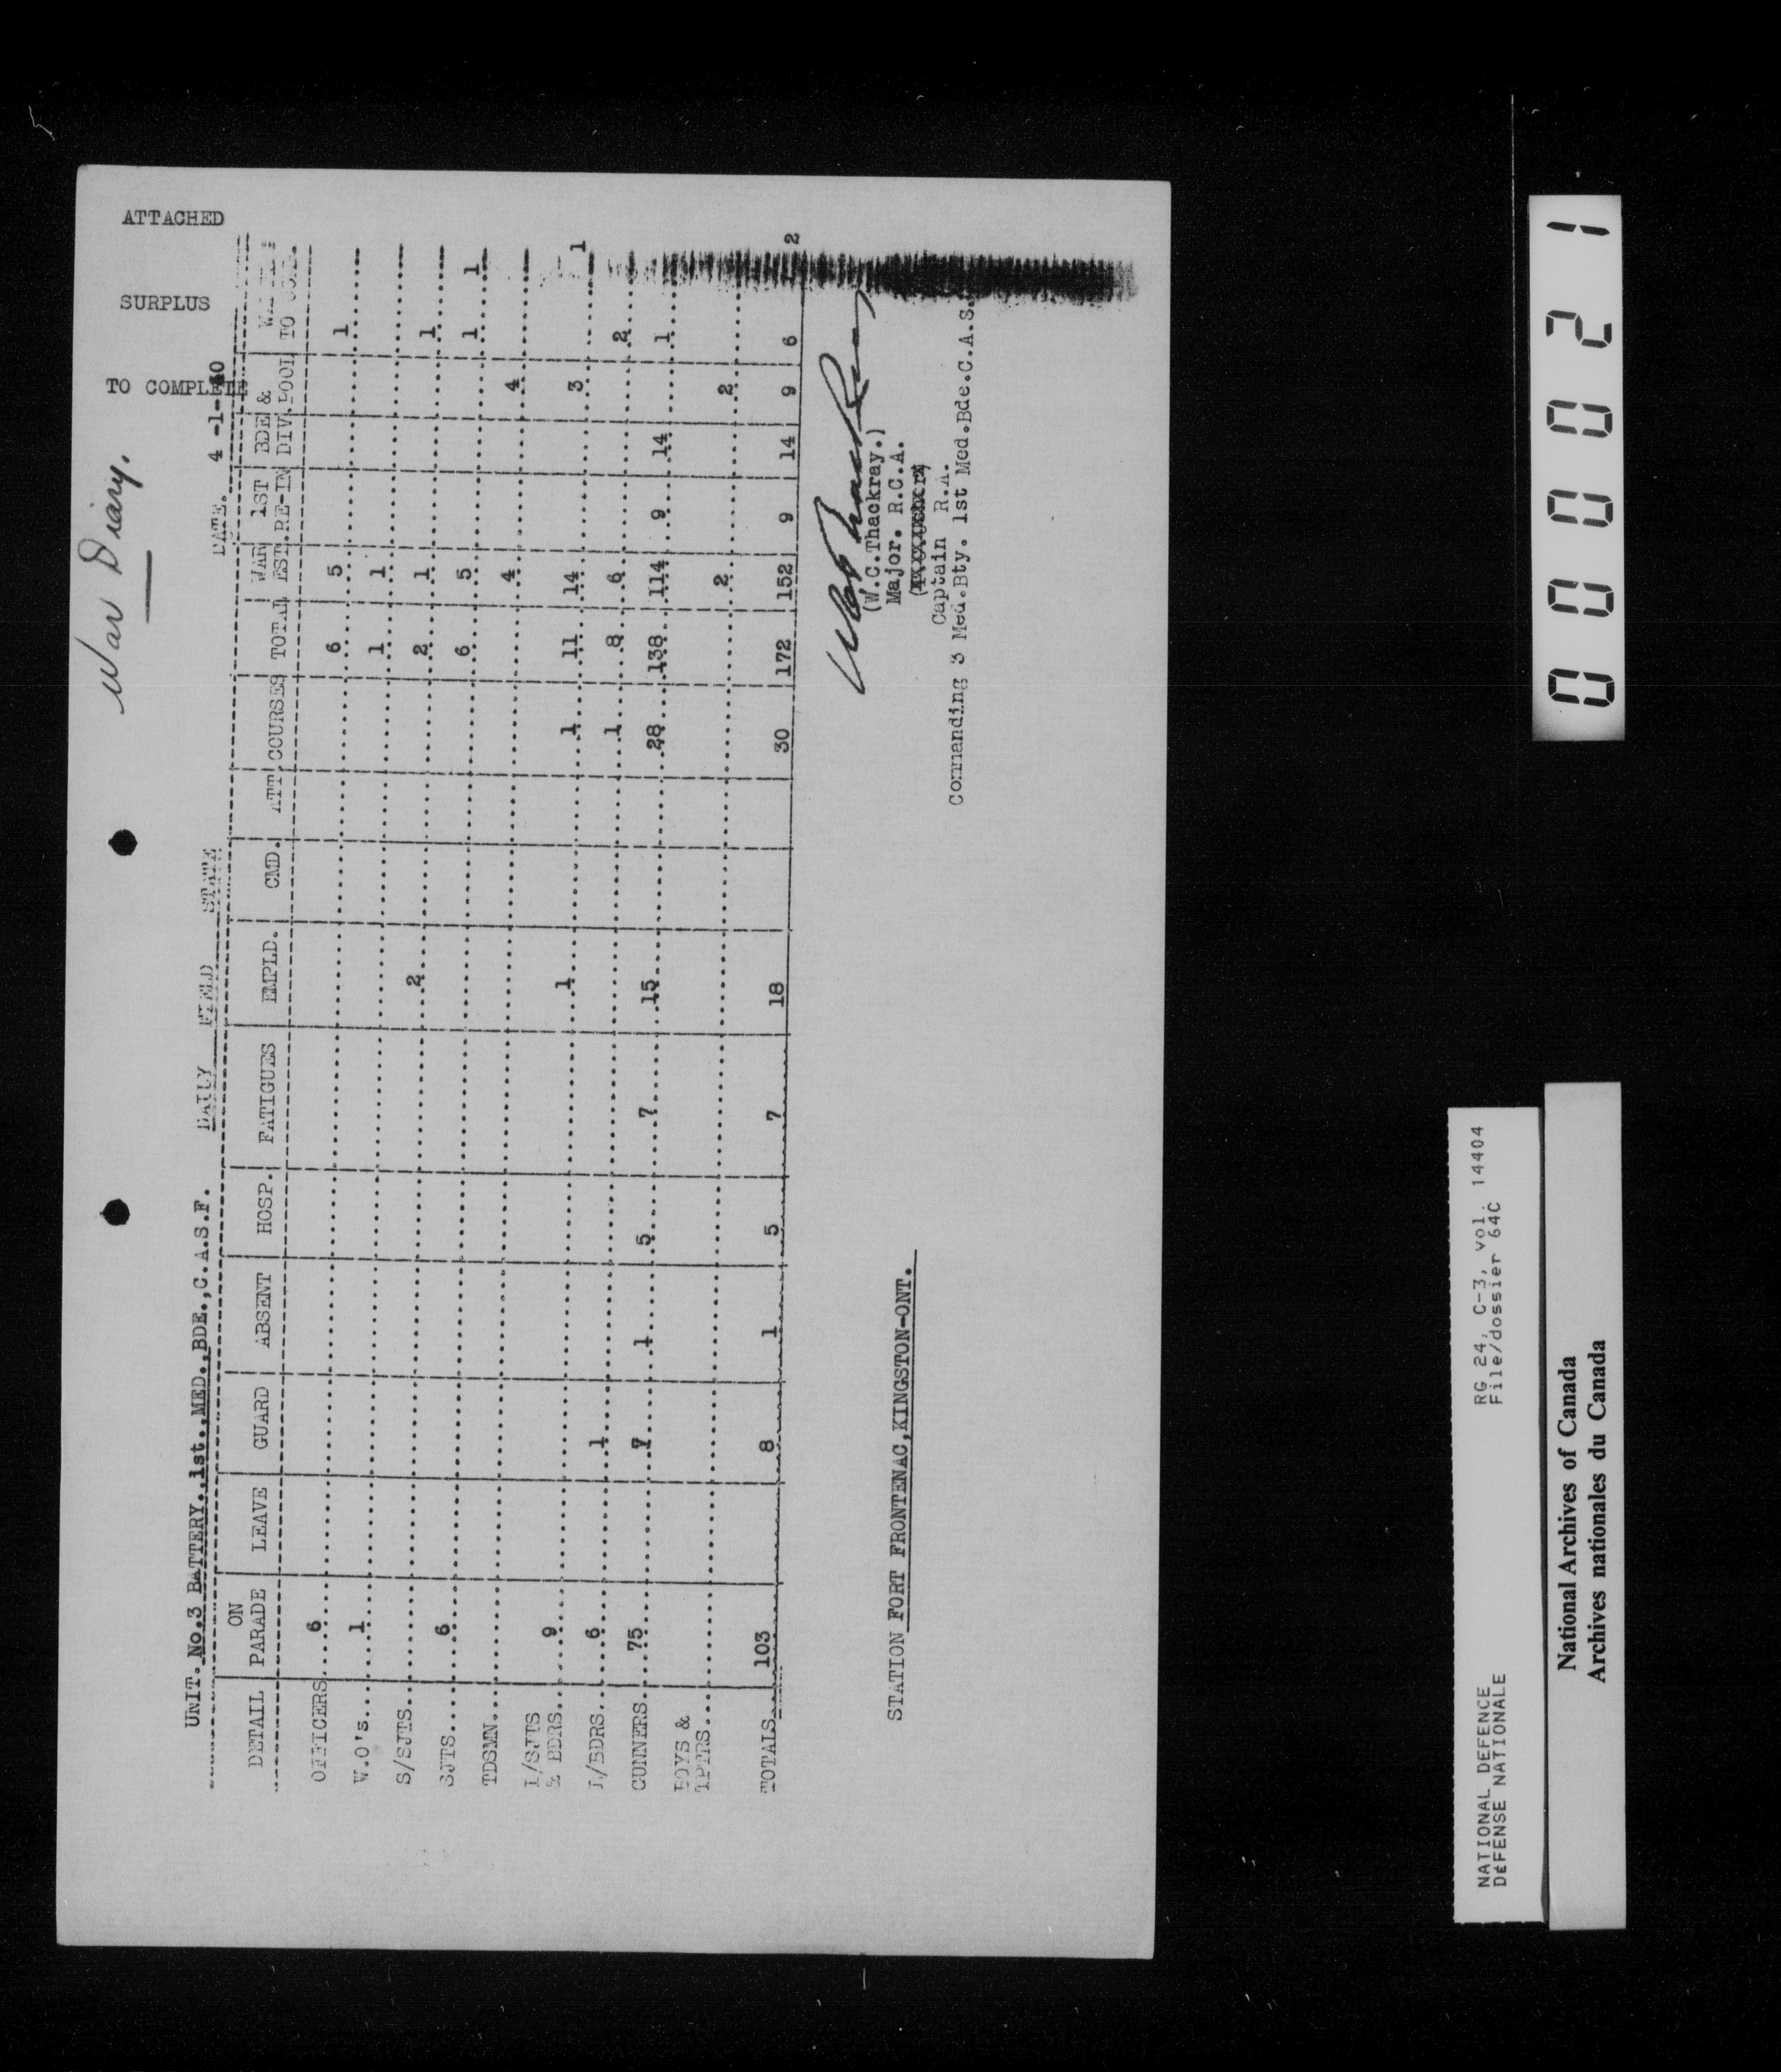 War Diary.
TO COMPLETE SURPLUS ATTACHED
UNIT. No.3 BATTERY.,1st.MED.,BDE.,C.A.S.F. DAILY FIELD STATE DATE. 4 -1-40
DETAIL ON PARADE LEAVE GUARD ABSENT HOSP. FATIGUES EMPLD. CMD. ATT COURSES TOTAL WAR EST. 1ST RE-IN BDE & DIV.POOL TO
OFFICERS 6 6 5 1
W.O's 1 1 1
S/SJTS 2 2 1 1
SJTS 6 6 5 1 1
TDSMN 4 4
L/SJTS
& BDRS 9 1 1 11 14 3 1
L/BDRS 6 1 1 8 6 2
GUNNERS 75 7 1 5 7 15 28 138 114 9 14 1
BOYS &
TPTRS 2 2
TOTALS 103 8 1 5 7 18 30 172 152 9 14 9 6 2
(W.C.Thackray.)
Major. R.C.A.
Captain R.A.
Commanding 3 Med.Bty. 1st Med.Bde.C.A.S.
STATION FORT FRONTENAC,KINGSTON-ONT.
0 0 0 0 2 1
NATIONAL DEFENCE RG 24, C-3, vol. 14404
DÉFENSE NATIONALE File/dossier 64C
National Archives of Canada
Archives nationales du Canada